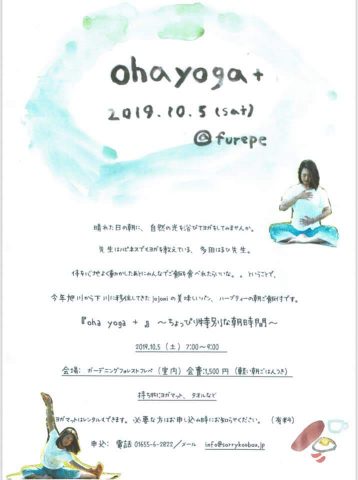 ohayoga+
2019.10.5 (sat)
@furepe
晴れた日の朝に、自然の光を浴びてヨガをしてみませんか。
先生はハピネスでもヨガを教えている、多田はるひ先生。
体を心地よく動かしたあとにみんなでご飯を食べれたらいいな。。ということで、
今年旭川から下川に移住してきたjojoniの美味しいパン、ハーブティーの朝ご飯付です。
『oha yoga + 』 ～ちょっぴり特別な朝時間～
2019.10.5 (土) 7:00～9:00
会場: ガーデニングフォレストフレペ (室内) 会費:1,500円 (軽い朝ごはんつき)
持ち物:ヨガマット、タオルなど
ヨガマットはレンタルもできます。必要な方はお申し込み時にお知らせください。 (有料)
申込: 電話 01655-6-2822/メール info@sorrykoubou.jp